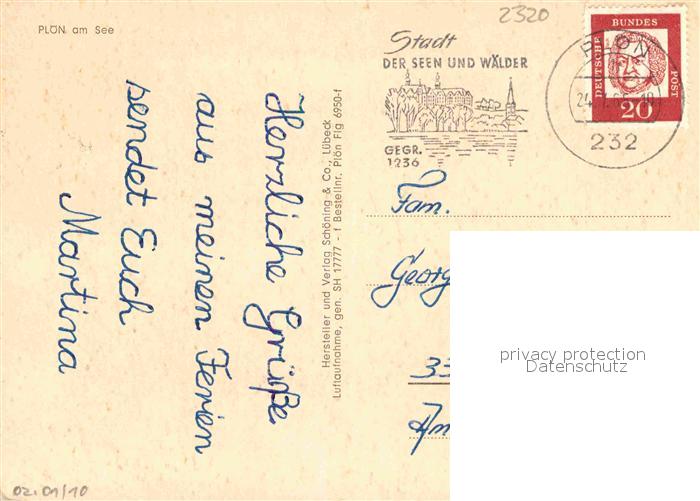 PLÖN am See
Herzliche Grüße
aus meinen Ferien
sendet Euch
Martina
Hersteller und Verlag Schöning & Co., Lübeck
Luftaufnahme, gen. SH 17777 - f Bestellnr. Plön Flg 6950-f
2320
Stadt
DER SEEN UND WÄLDER
GEGR.
1236
PLÖN
232
DEUTSCHE
BUNDES
POST
20
Fam.
Georg
33
privacy protection
Datenschutz
02.01/10